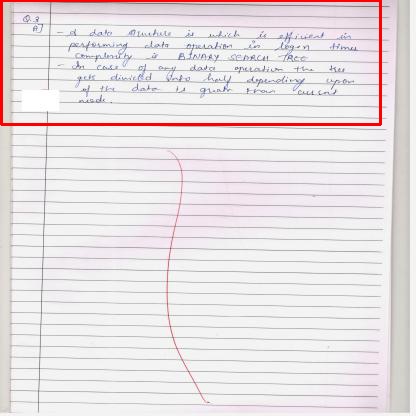 Q.3
A]
- A data structure is which is efficient in
performing data operation in logn times
complexity is BINARY SEARCH TREE
- In case of any data operation the tree
gets divided into half depending upon
if the data is greater than current
node.